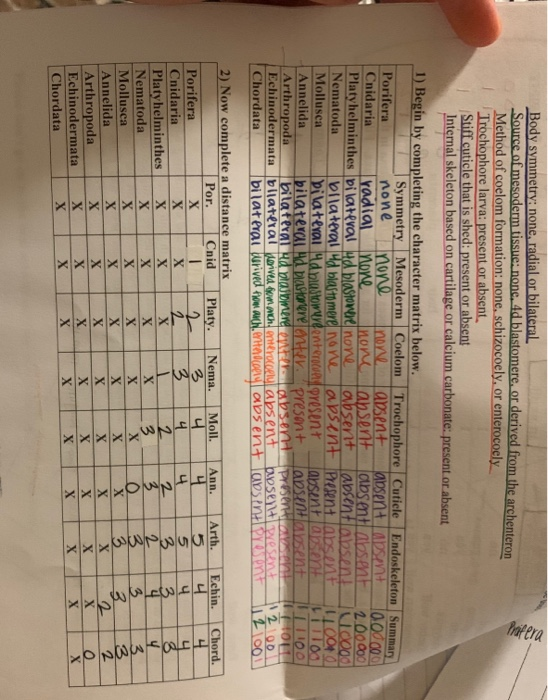 Porifera
Body symmetry: none, radial or bilateral
Source of mesoderm tissue: none, 4d blastomere, or derived from the archenteron
Method of coelom formation: none, schizocoely, or enterocoely
Trochophore larva: present or absent
Stiff cuticle that is shed: present or absent
Internal skeleton based on cartilage or calcium carbonate: present or absent
1) Begin by completing the character matrix below.
Symmetry Mesoderm Coelom Trochophore Cuticle Endoskeleton Summary
Porifera none none none absent absent absent 000000
Cnidaria radial none none absent absent absent 200000
Platyhelminthes bilateral 4d blastomere none absent absent absent 110000
Nematoda bilateral 4d blastomere none absent Present absent
Mollusca bilateral 4d blastomere present absent absent
Annelida bilateral 4d blastomere enter. present absent absent
Arthropoda bilateral 4d blastomere enter. absent present absent
Echinodermata bilateral derived from arch. enterocoely absent absent present 121001
Chordata bilateral derived from arch. enterocoely absent absent present 121001
2) Now complete a distance matrix
Por. Cnid Platy. Nema. Moll. Ann. Arth. Echin. Chord.
Porifera X 1 2 3 4 4 5 4 4
Cnidaria X X 2 3 4 4 5 4 4
Platyhelminthes X X X 1 2 2 3 3 3
Nematoda X X X X 3 3 2 4 4
Mollusca X X X X X 0 3 3 3
Annelida X X X X X X 3 3 3
Arthropoda X X X X X X X 2 2
Echinodermata X X X X X X X X 0
Chordata X X X X X X X X X